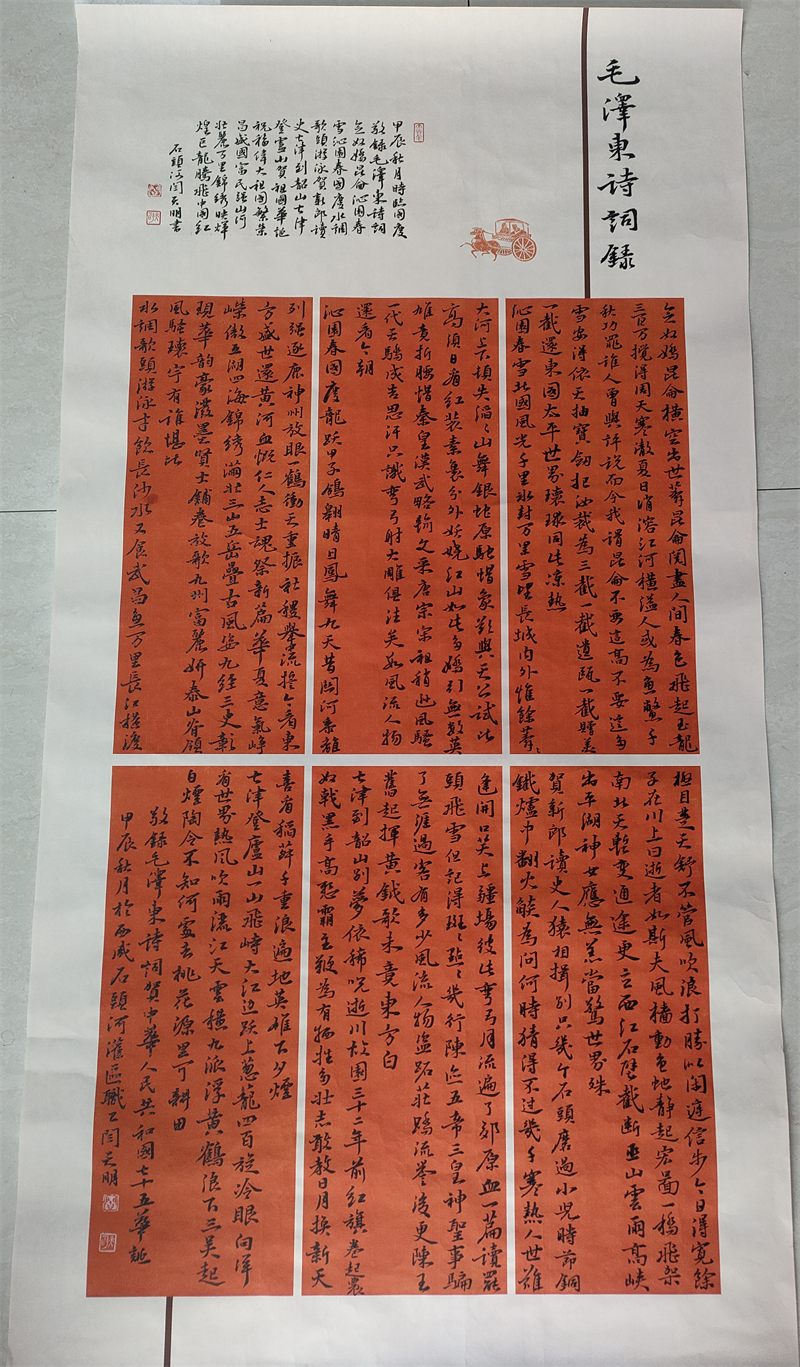 毛澤東詩詞錄
甲辰秋月時臨國慶
敬錄毛澤東詩詞
念奴嬌昆侖沁園春
雪沁園春國慶水調
歌頭游泳賀新郎讀
史七律到韶山七律
登廬山賀祖國華誕
祝福偉大祖國繁榮
昌盛國富民强山河
壯麗万里錦綉輝
煌巨龍騰飛中國紅
石頭河閆天明書
念奴嬌昆侖橫空出世莽昆侖閱盡人間春色飛起玉龍
三百万攪得周天寒澈夏日消溶江河橫溢人或為魚鱉千
秋功罪誰人曾與評說而今我謂昆侖不要這高不要這多
雪安得依天抽寶劍把汝裁為三截一截遺甌一截贈美
一截還東國太平世界環球同此凉熱
沁園春雪北國風光千里冰封万里雪望長城內外惟餘莽々
大河上下頓失滔々山舞銀蛇原馳蜡象欲與天公試比
高須日看紅装素裹分外妖嬈江山如此多嬌引無數英
雄竟折腰惜秦皇漢武略輸文采唐宗宋祖稍遜風騷
一代天驕成吉思汗只識彎弓射大雕俱往矣數風流人物
還看今朝
沁園春國慶龍跃甲子鴿翱晴日鳳舞九天昔關河黍離
列强逐鹿神州放眼一鶴衝天重振社稷舉流提今看東
方盛世還黃河血慨仁人志士魂祭新篇華夏意氣崢
嶸傲五湖四海錦綉滿壯三山五岳疊古風姿九經三史彰
現華韵豪潑墨賢士鋪卷放歌九州富麗妍泰山脊領
風騷環宇有誰堪比
水調歌頭游泳才飲長沙水又食武昌魚万里長江橫渡
極目楚天舒不管風吹浪打勝似閑庭信步今日得寬餘
子在川上曰逝者如斯夫風檣動龜蛇靜起宏圖一橋飛架
南北天塹變通途更立西江石壁截断巫山雲雨高峽
出平湖神女應無恙當驚世界殊
賀新郎讀史人猿相揖別只幾个石頭磨過小兒時節銅
鐵爐中翻火燄為問何時猜得不过幾千寒熱人世難
逢開口笑上疆場彼此彎弓月流遍了郊原血一篇讀罷
頭飛雪但記得斑々點々幾行陳迹五帝三皇神聖事騙
了無涯過客有多少風流人物盜跖莊蹻流譽後更陳王
奮起揮黃鉞歌未竟東方白
七律到韶山別夢依稀咒逝川故園三十二年前紅旗卷起農
奴戟黑手高懸霸主鞭為有犧牲多壮志敢教日月換新天
喜看稻菽千重浪遍地英雄下夕煙
七律登廬山一山飛峙大江边跃上蔥蘢四百旋冷眼向洋
看世界熱風吹雨灑江天雲橫九派浮黃鶴浪下三吴起
白煙陶令不知何處去桃花源里可耕田
敬錄毛澤東詩詞賀中華人民共和國七十五華誕
甲辰秋月於西咸石頭河灌區職工閆天明